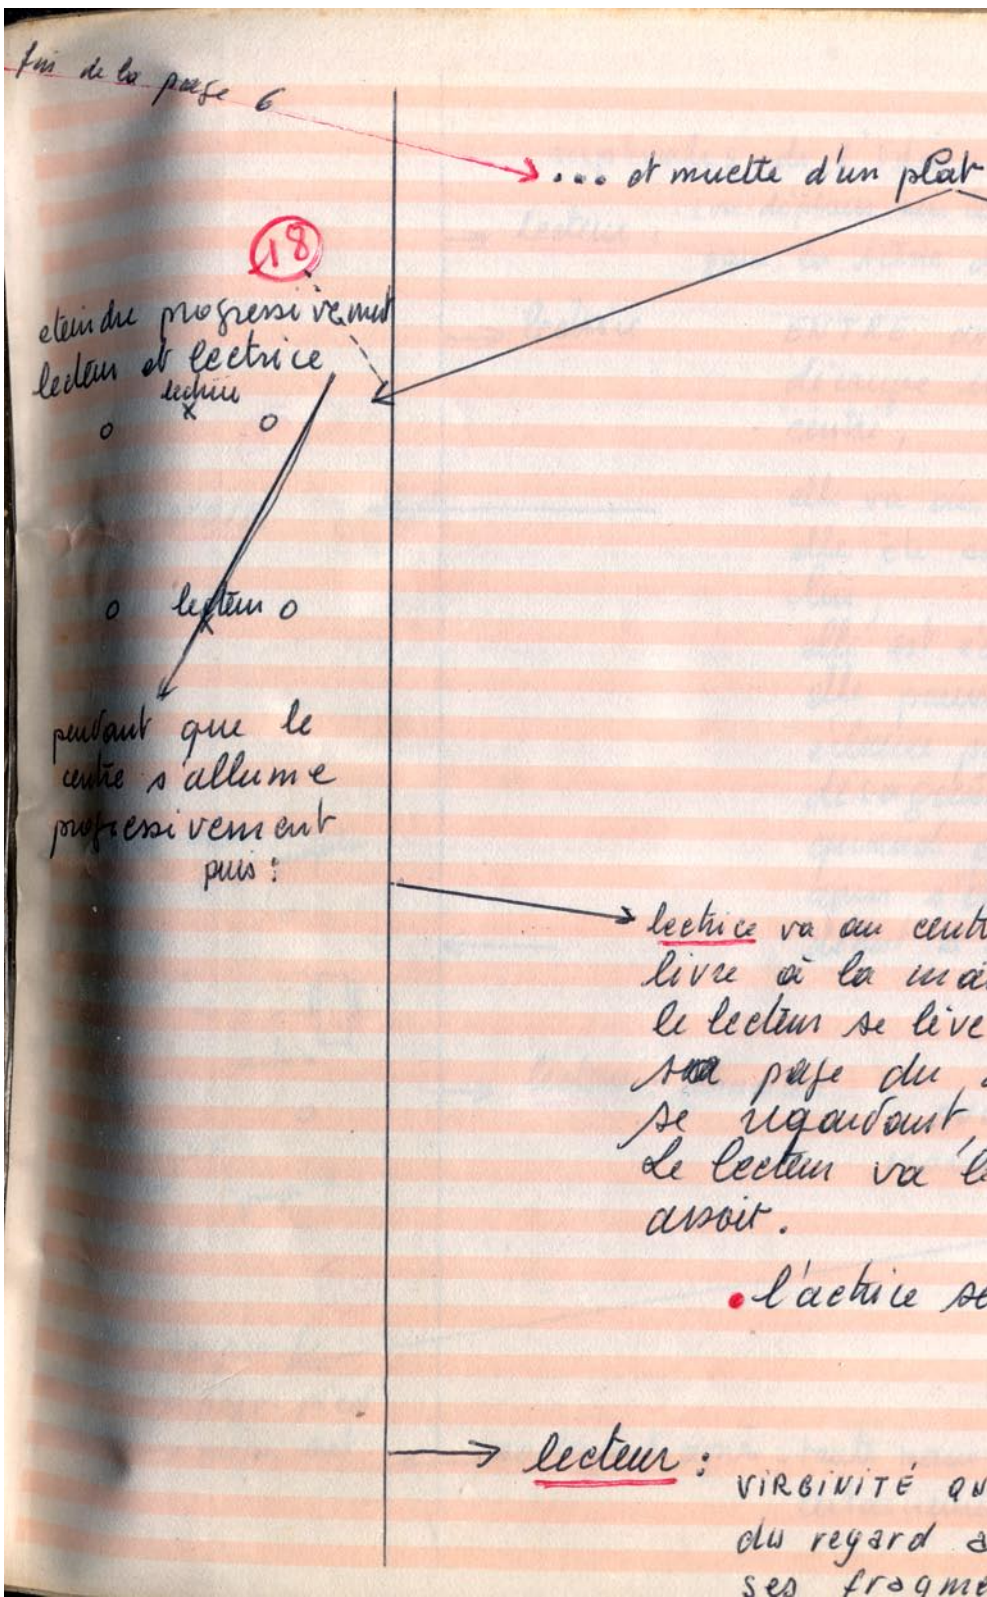 fin de la page 6
... et muette d'un plat
18
eteindre progressivement
lecteur et lectrice
lectrice
x
o o
o lecteur o
x
pendant que le
centre s'allume
progressivement
puis :
lectrice va au cent
livre à la ma
le lecteur se lève
sa page du
se regardant,
Le lecteur va
assoit.
• l'actrice se
lecteur :
VIRGINITÉ QU
du regard a
ses fragme